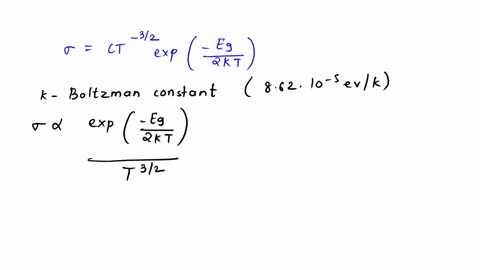 σ = CT^{-3/2} exp(-Eg/2KT)
K - Boltzman constant (8.62. 10^{-5} ev/k)
σ ∝ exp(-Eg/2KT) / T^{3/2}